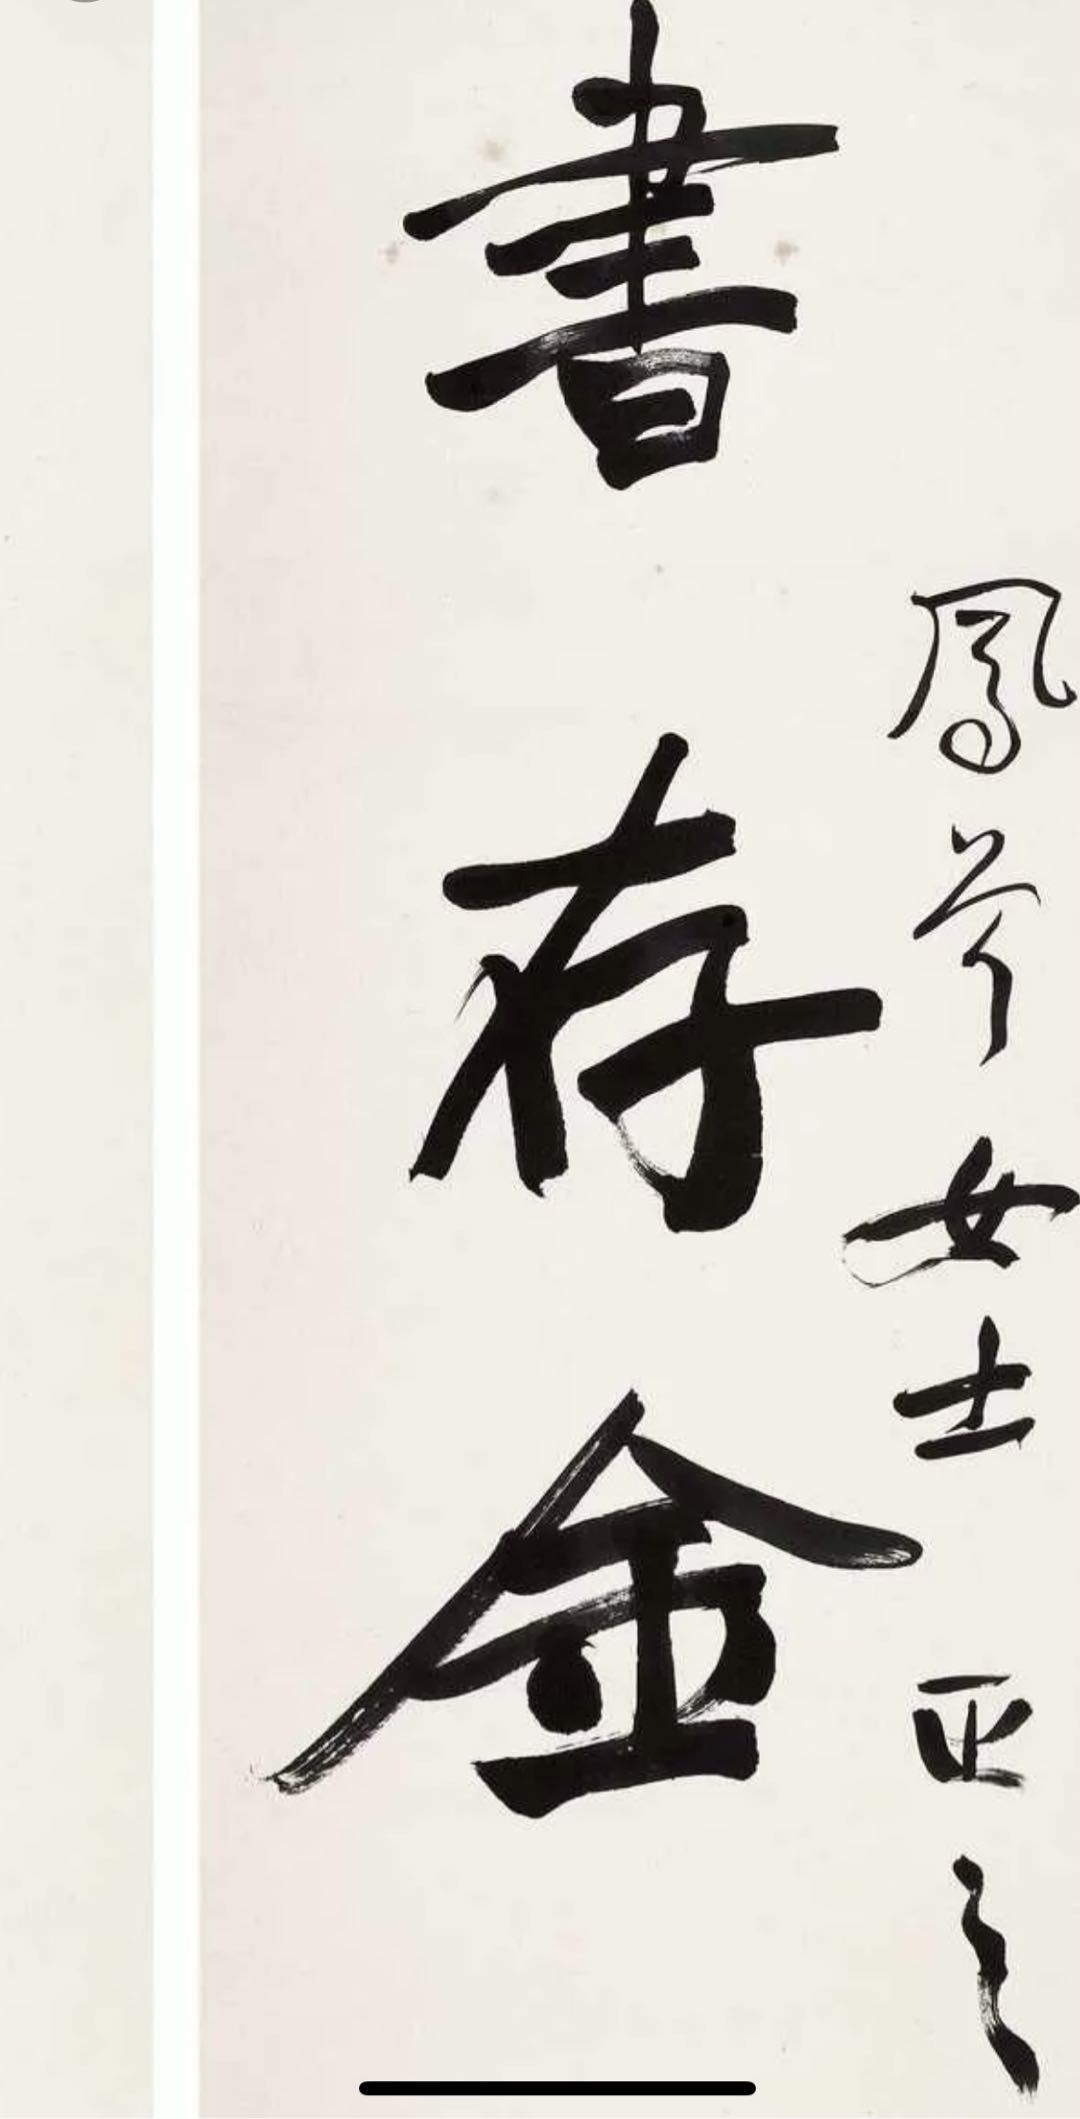 鳳女士正之
書存金